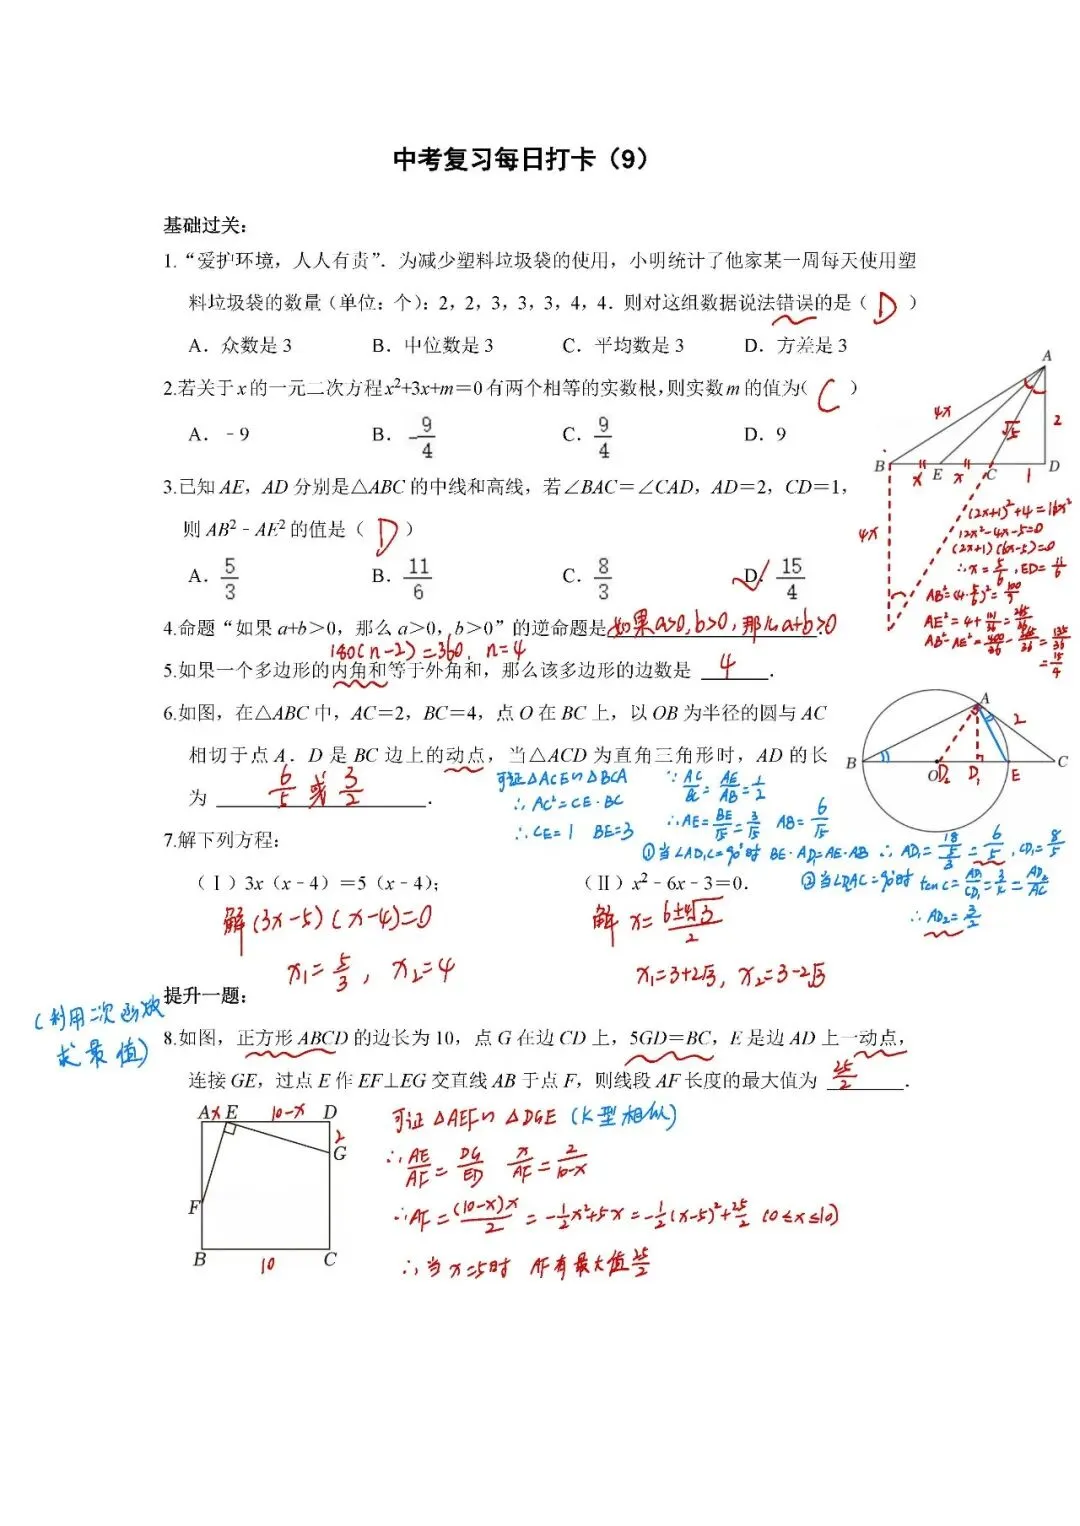 中考复习每日打卡（9）
基础过关：
1.“爱护环境，人人有责”．为减少塑料垃圾袋的使用，小明统计了他家某一周每天使用塑
料垃圾袋的数量（单位：个）：2，2，3，3，3，4，4．则对这组数据说法错误的是（ D ）
A．众数是 3 B．中位数是 3 C．平均数是 3 D．方差是 3
2.若关于 x 的一元二次方程 x²+3x+m＝0 有两个相等的实数根，则实数 m 的值为（ C ）
A．﹣9 B．-9/4 C．9/4 D．9
3.已知 AE，AD 分别是△ABC 的中线和高线，若∠BAC＝∠CAD，AD＝2，CD＝1，
则 AB²﹣AE² 的值是（ D ）
A．5/3 B．11/6 C．8/3 D．15/4
A
4x
√5
2
B x E x C 1 D
4x
(2x+1)²+4=16x²
12x²-4x-5=0
(2x+1)(6x-5)=0
∴x=5/6，ED=11/6
AB²=(4·5/6)²=100/9
AE²=4+121/36=265/36
AB²-AE²=400/36-265/36=135/36
=15/4
4.命题“如果 a+b＞0，那么 a＞0，b＞0”的逆命题是 如果a>0，b>0，那么a+b>0．
180(n-2)=360，n=4
5.如果一个多边形的内角和等于外角和，那么该多边形的边数是 4 ．
6.如图，在△ABC 中，AC＝2，BC＝4，点 O 在 BC 上，以 OB 为半径的圆与 AC
相切于点 A．D 是 BC 边上的动点，当△ACD 为直角三角形时，AD 的长
为 6/5 或 3/2 ．
A
2
B O D₂ D₁ E C
可证△ACE∽△BCA
∴AC²=CE·BC
∴CE=1 BE=3
∵AC/BC=AE/AB=1/2
∴AE=BE/√5=3/√5 AB=6/√5
①当∠AD₁C=90°时 BE·AD₁=AE·AB ∴AD₁=18/5/3=6/5，CD₁=8/5
②当∠DAC=90°时 tanC=AD₁/CD₁=3/4=AD₂/AC
∴AD₂=3/2
7.解下列方程：
（Ⅰ）3x（x﹣4）＝5（x﹣4）； （Ⅱ）x²﹣6x﹣3＝0．
解 (3x-5)(x-4)=0
x₁=5/3，x₂=4
解 x=6±4√3/2
x₁=3+2√3，x₂=3-2√3
提升一题：
(利用二次函数
求最值)
8.如图，正方形 ABCD 的边长为 10，点 G 在边 CD 上，5GD＝BC，E 是边 AD 上一动点，
连接 GE，过点 E 作 EF⊥EG 交直线 AB 于点 F，则线段 AF 长度的最大值为 25/2 ．
A x E 10-x D
2
G
F
B 10 C
可证△AEF∽△DGE (K型相似)
∴AE/AF=DG/ED x/AF=2/10-x
∴AF=(10-x)x/2=-1/2x²+5x=-1/2(x-5)²+25/2 (0≤x≤10)
∴当x=5时 AF有最大值25/2